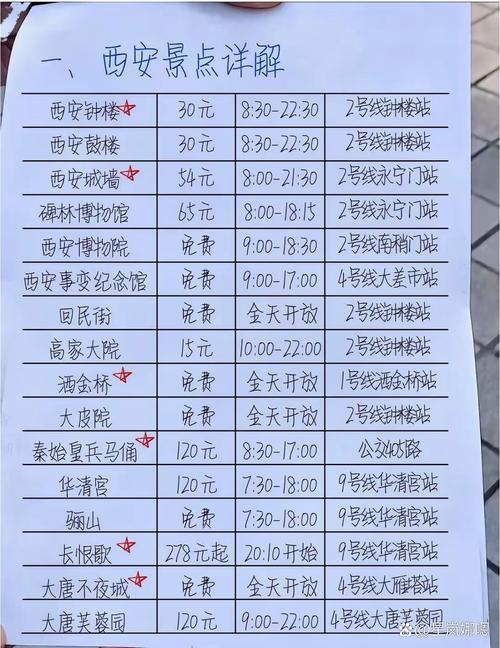 一、西安景点详解
西安钟楼☆ 30元 8:30-22:30 2号线钟楼站
西安鼓楼 30元 8:30-22:30 2号线钟楼站
西安城墙☆ 54元 8:00-21:30 2号线永宁门站
碑林博物馆 65元 8:00-18:15 2号线永宁门站
西安博物院 免费 9:00-18:30 2号线南稍门站
西安事变纪念馆 免费 9:00-17:00 4号线大差市站
回民街 免费 全天开放 2号线钟楼站
高家大院 15元 10:00-22:00 2号线钟楼站
洒金桥☆ 免费 全天开放 1号线洒金桥站
大皮院 免费 全天开放 2号线钟楼站
秦始皇兵马俑☆ 120元 8:30-17:00 公交405路
华清宫 120元 7:30-18:00 9号线华清宫站
骊山 免费 7:30-18:00 9号线华清宫站
长恨歌☆ 278元起 20:10开始 9号线华清宫站
大唐不夜城☆ 免费 全天开放 4号线大雁塔站
大唐芙蓉园 120元 9:00-22:00 4号线大唐芙蓉园